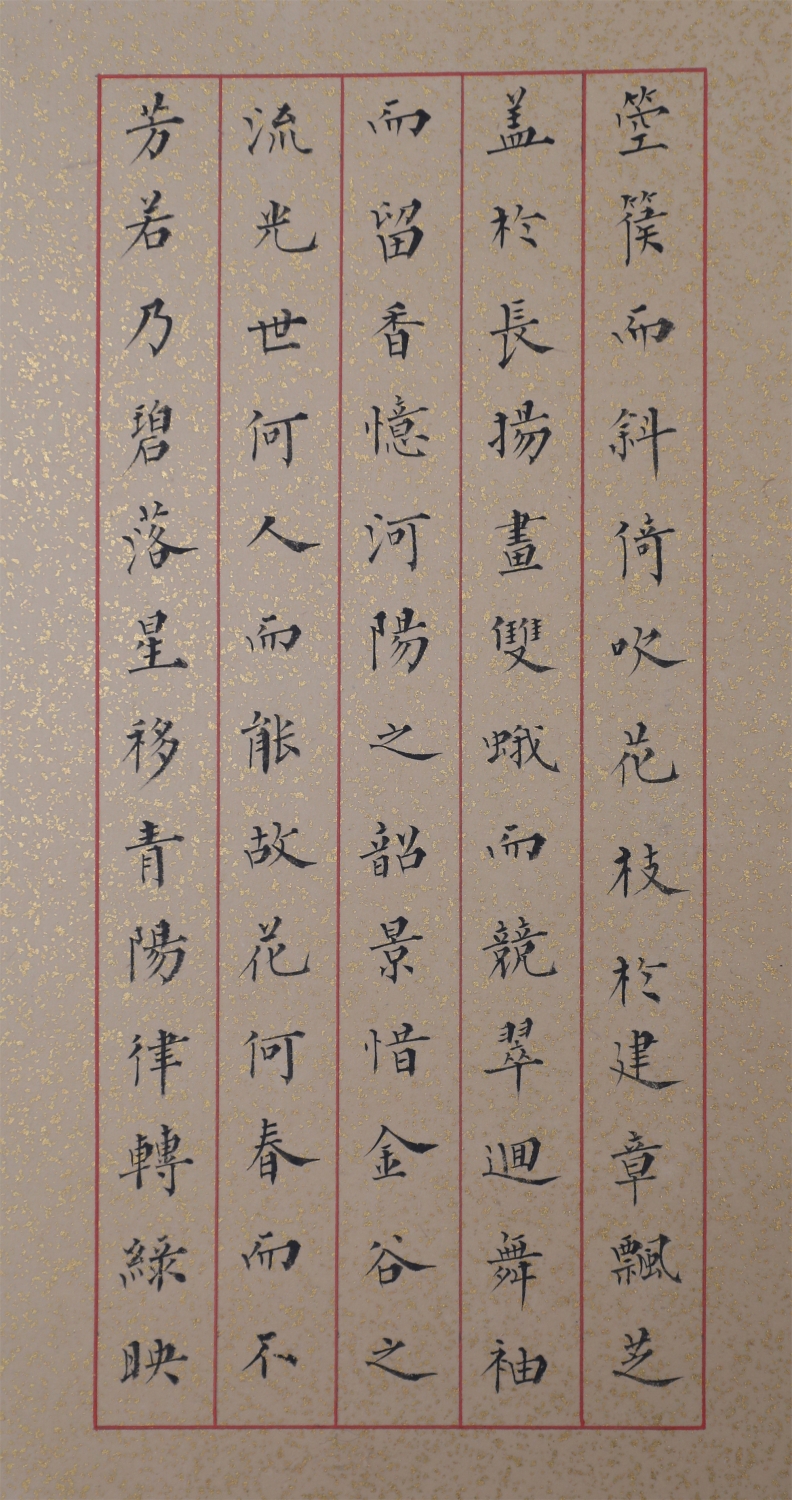 箜篌而斜倚吹花枝於建章飄芝
盖於長揚畫雙蛾而競翠迴舞袖
而留香憶河陽之韶景惜金谷之
流光世何人而能故花何春而不
芳若乃碧落星移青陽律轉綠映